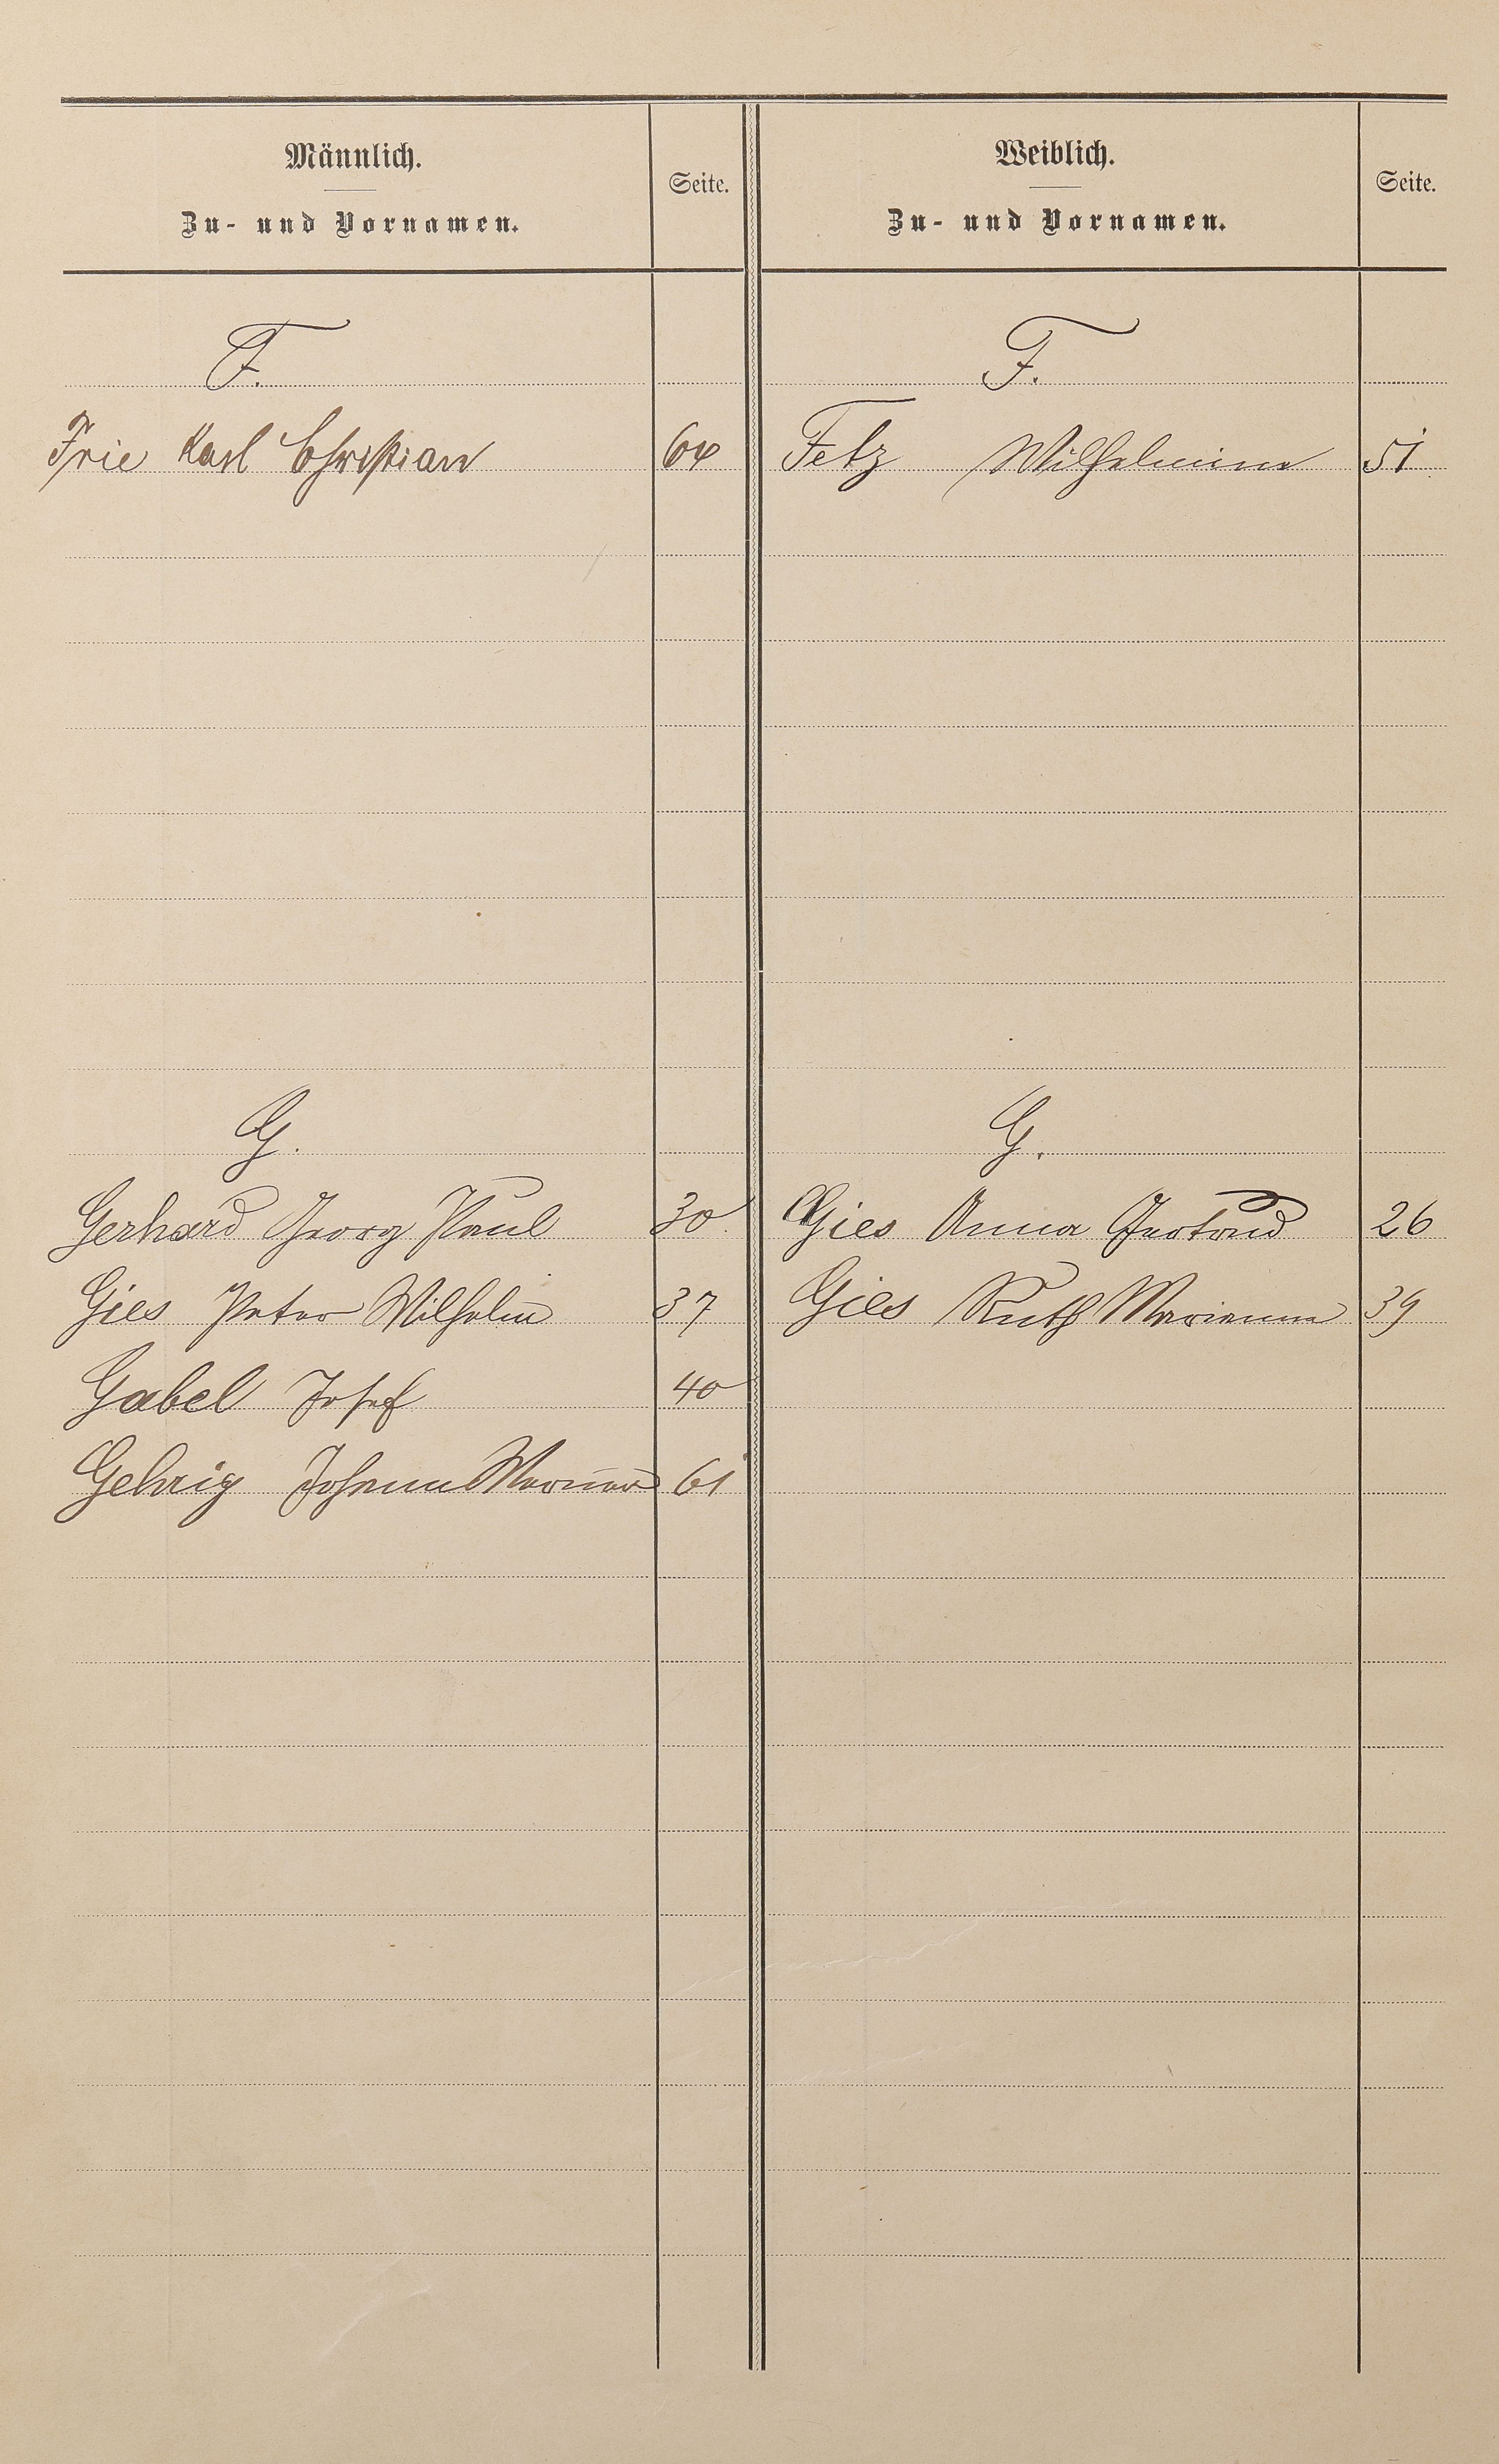 Männlich.
Zu- und Vornamen.
Seite.
Weiblich.
Zu- und Vornamen.
Seite.
F.
F.
Frie Karl Christian 64
Fetz Wilhelmine 51
G.
G.
Gerhard Georg Paul 30
Gies Anna Gertrud 26
Gies Peter Wilhelm 37
Gies Ruth Marianne 39
Gabel Josef 40
Gehrig Johann Werner 61